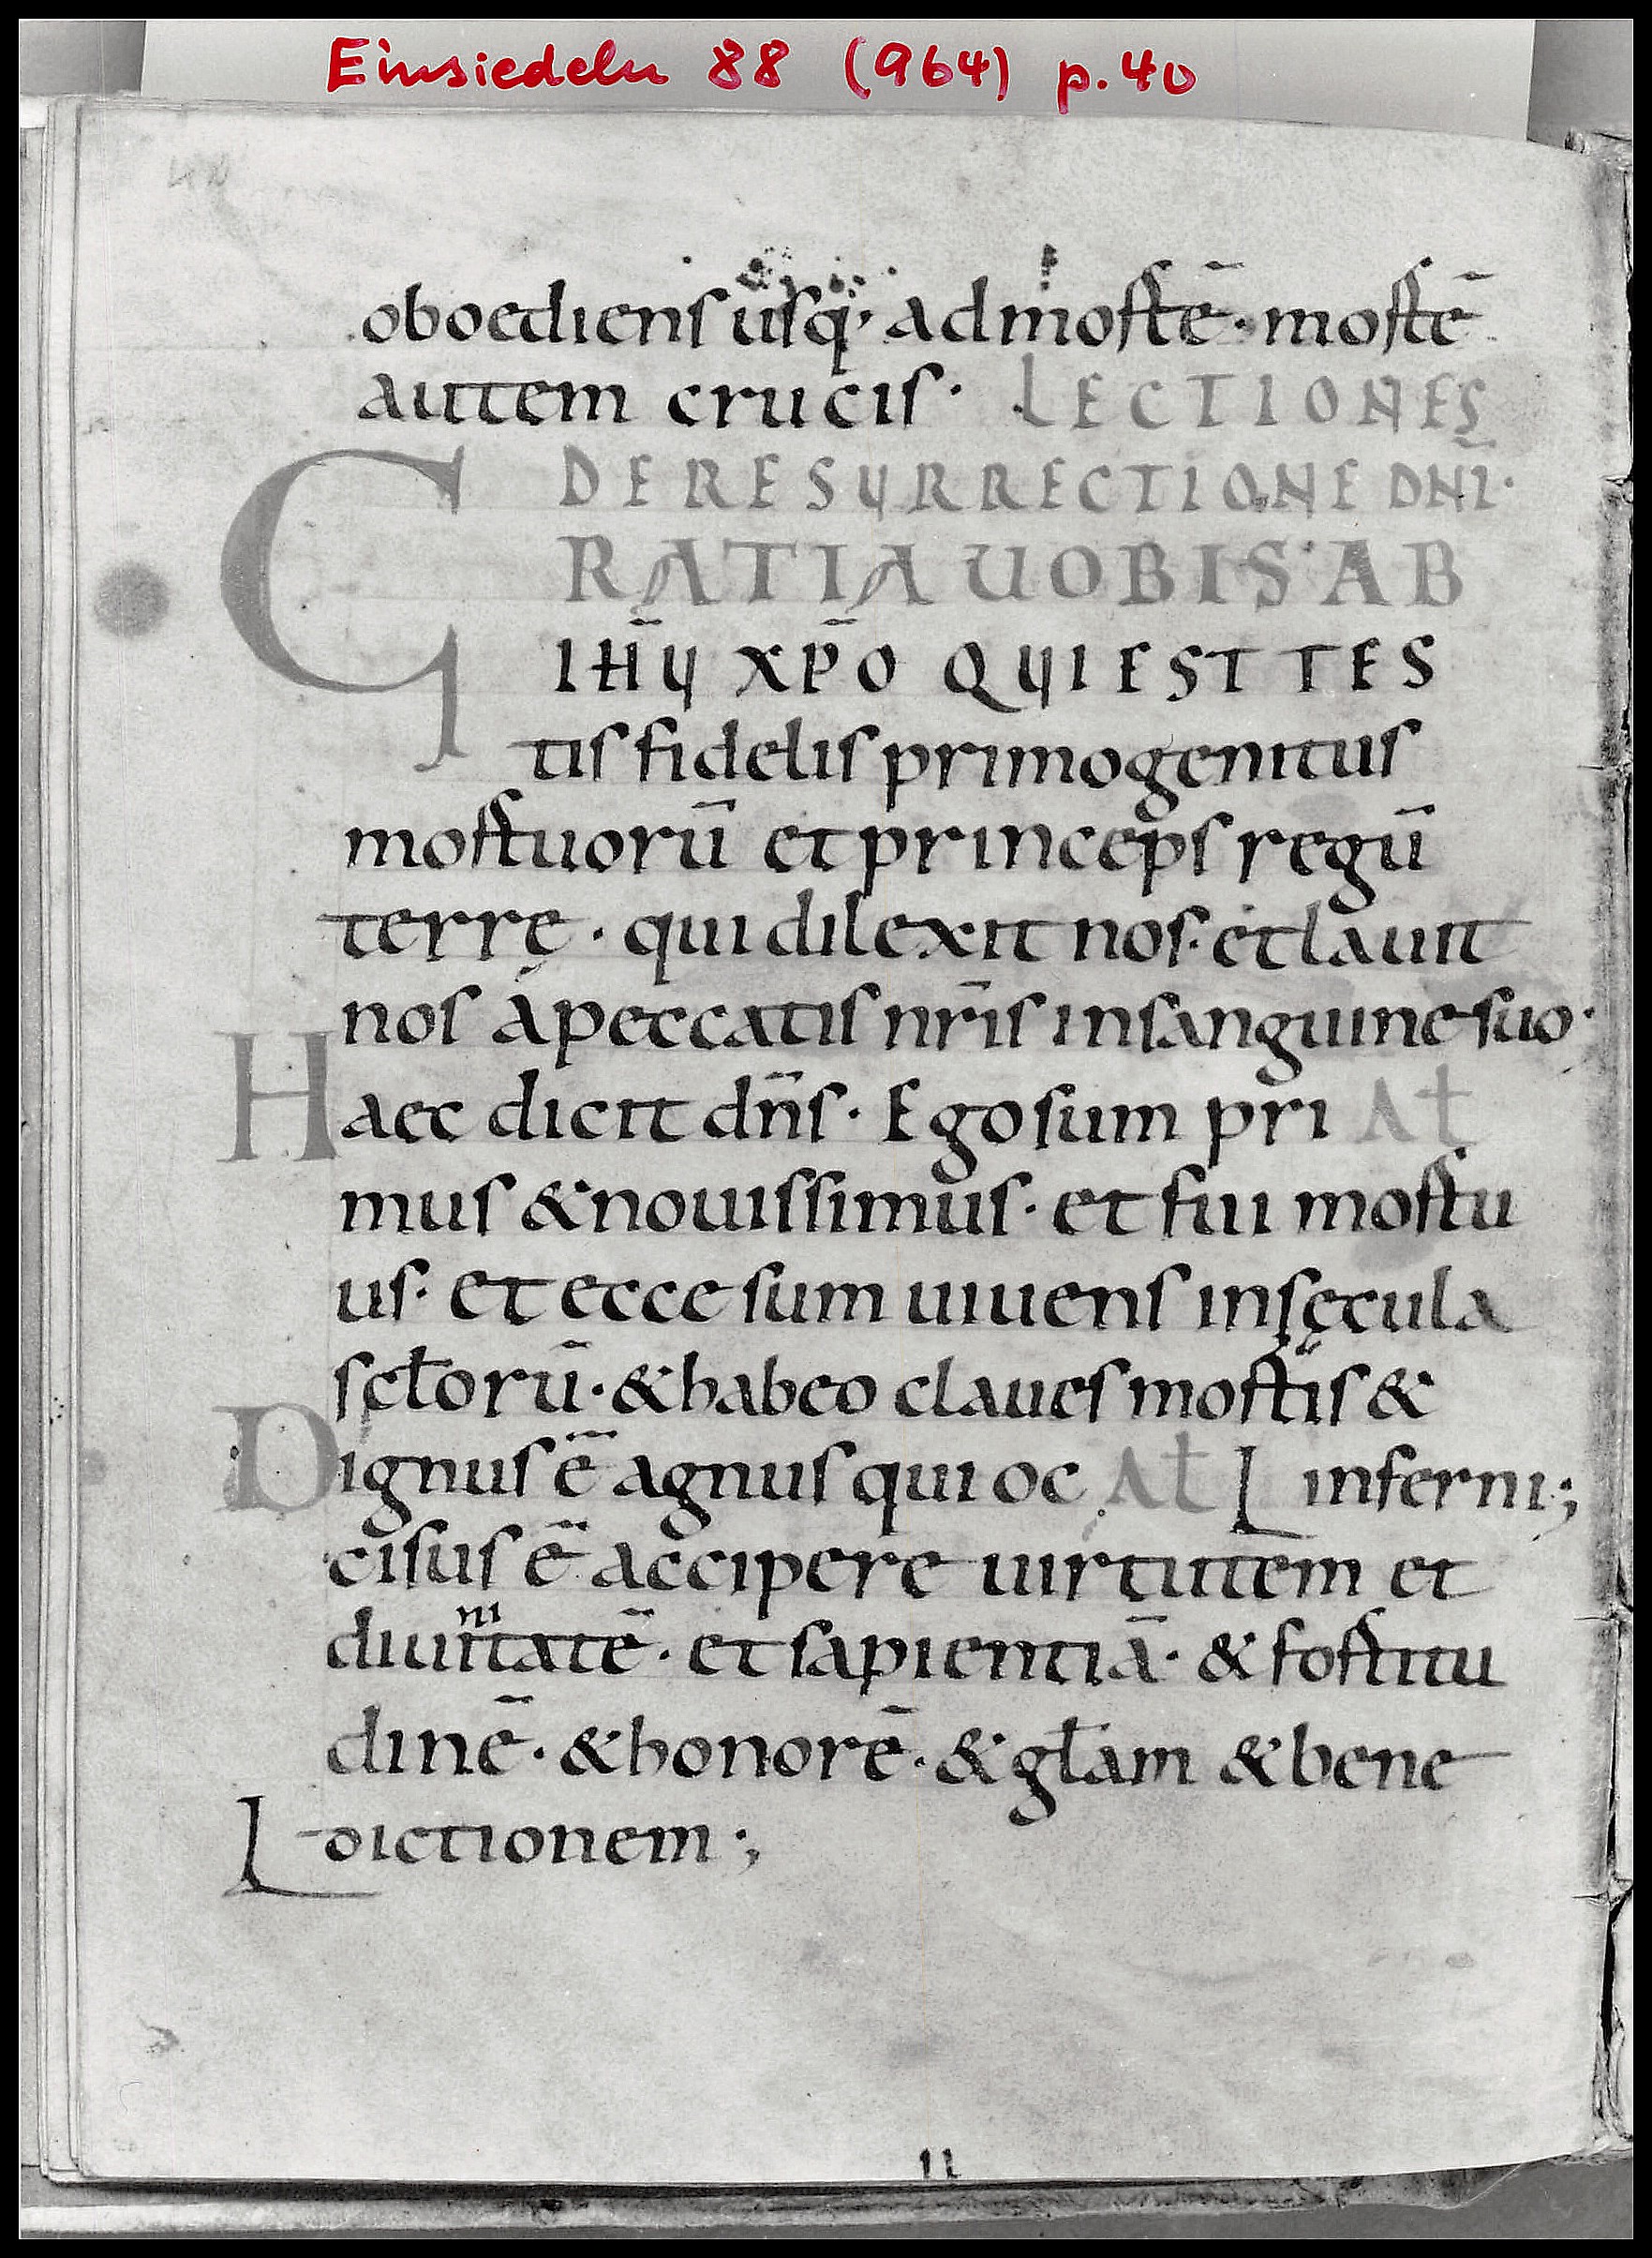 Einsiedeln 88 (964) p. 40
oboediens usq; ad mortē · mortē
autem crucis · LECTIONES
DE RESURRECTIONE DN̄I ·
GRATIA UOBIS AB
IHŪ XP̄O QUI EST TES
tis fidelis primogenitus
mortuorū et princeps regū
terrę · qui dilexit nos · et lauit
nos a peccatis nr̄is in sanguine suo ·
Haec dicit dn̄s · Ego sum pri Ał
mus & nouissimus · et fui mortu
us · et ecce sum uiuens in sęcula
scłorū · & habeo claues mortis &
Dignus ē agnus qui oc Ał inferni ;
cisus ē accipere uirtutem et
diui\ni/tatē · et sapientiā · & fortitu
dinē · & honorē · & głam & bene
dictionem ;